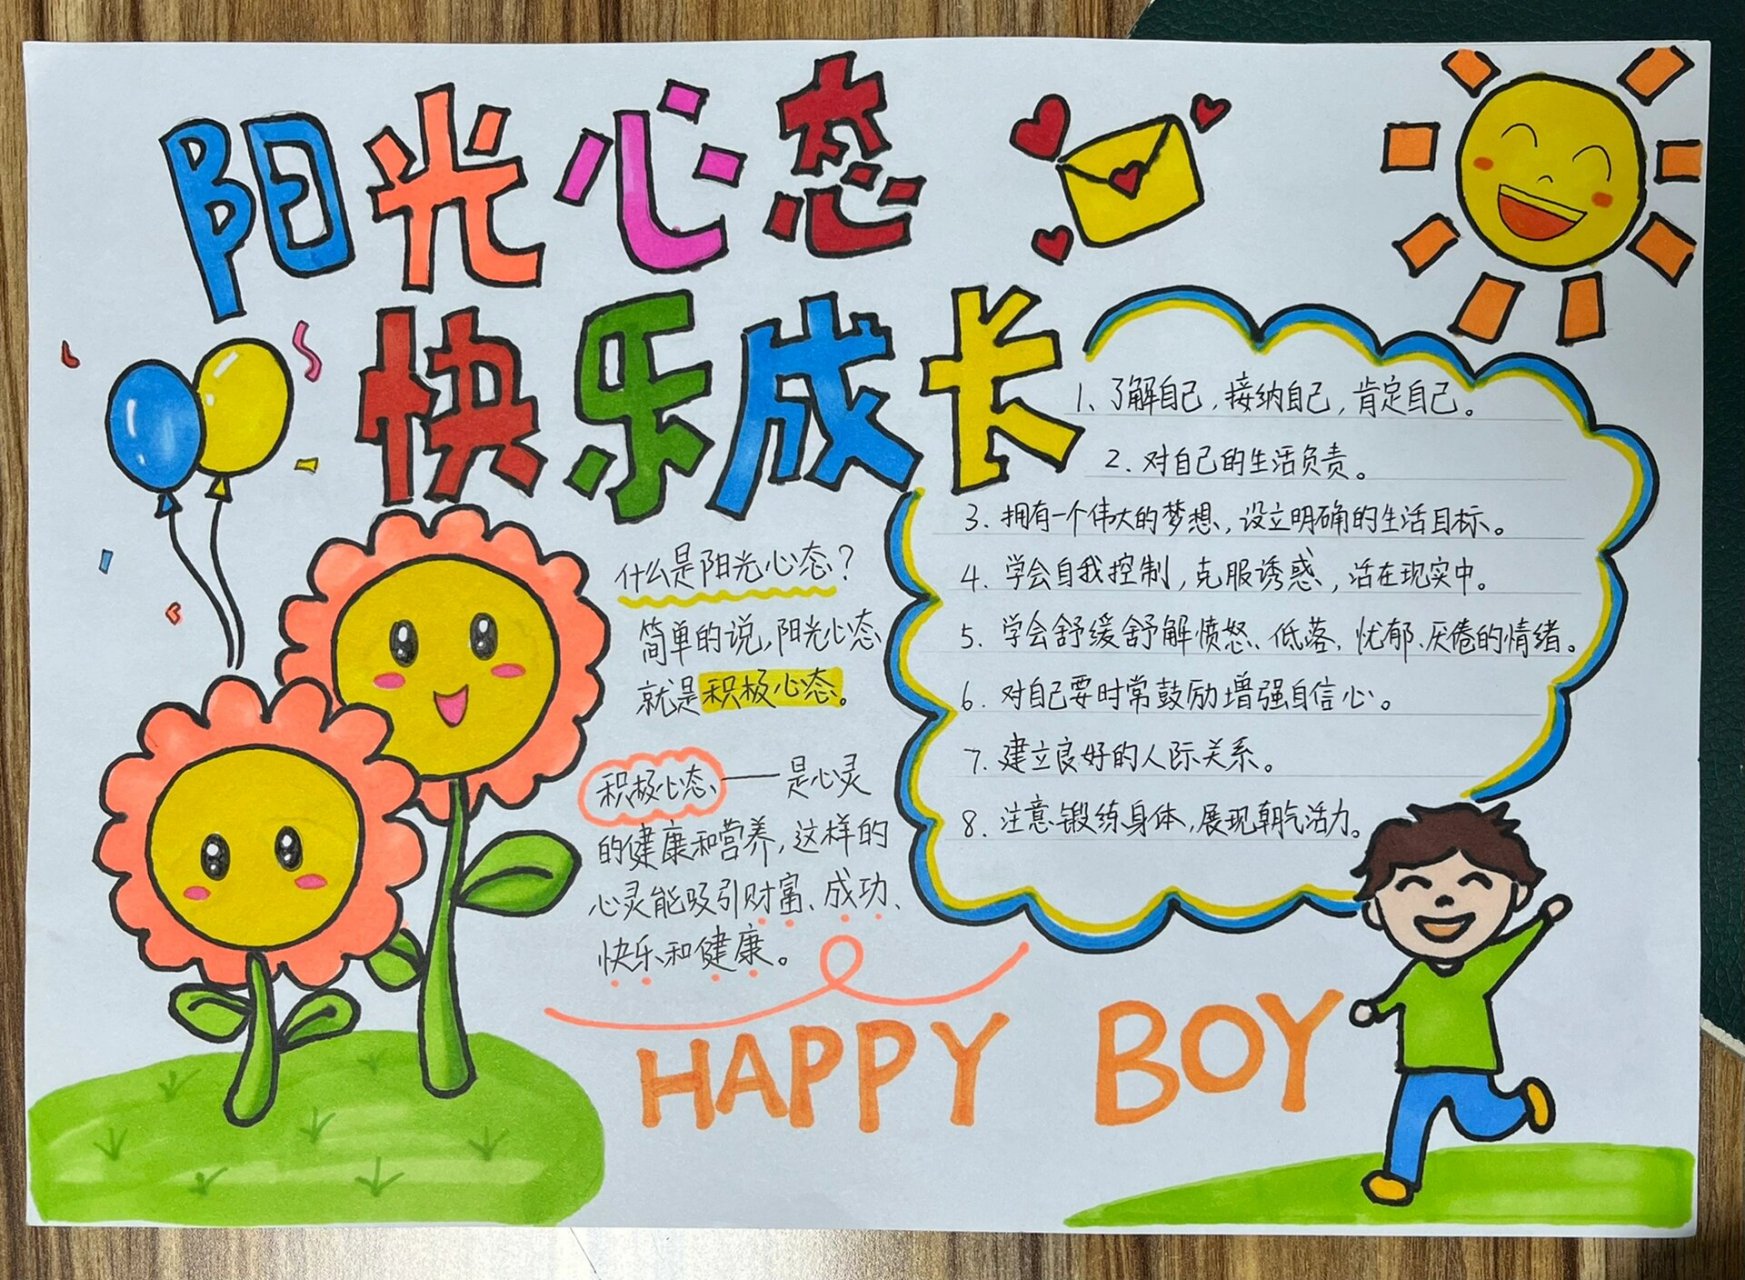 阳光心态
快乐成长
什么是阳光心态?
简单的说,阳光心态
就是积极心态。
积极心态——是心灵
的健康和营养,这样的
心灵能吸引财富、成功、
快乐和健康。
1、了解自己,接纳自己,肯定自己。
2.对自己的生活负责。
3.拥有一个伟大的梦想,设立明确的生活目标。
4.学会自我控制,克服诱惑,活在现实中。
5.学会舒缓舒解愤怒、低落、忧郁、厌倦的情绪。
6.对自己要时常鼓励增强自信心。
7.建立良好的人际关系。
8.注意锻练身体,展现朝气活力。
HAPPY BOY